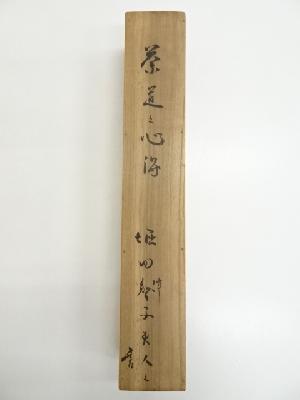 茶道之心得
堀田伴子夫人之
書